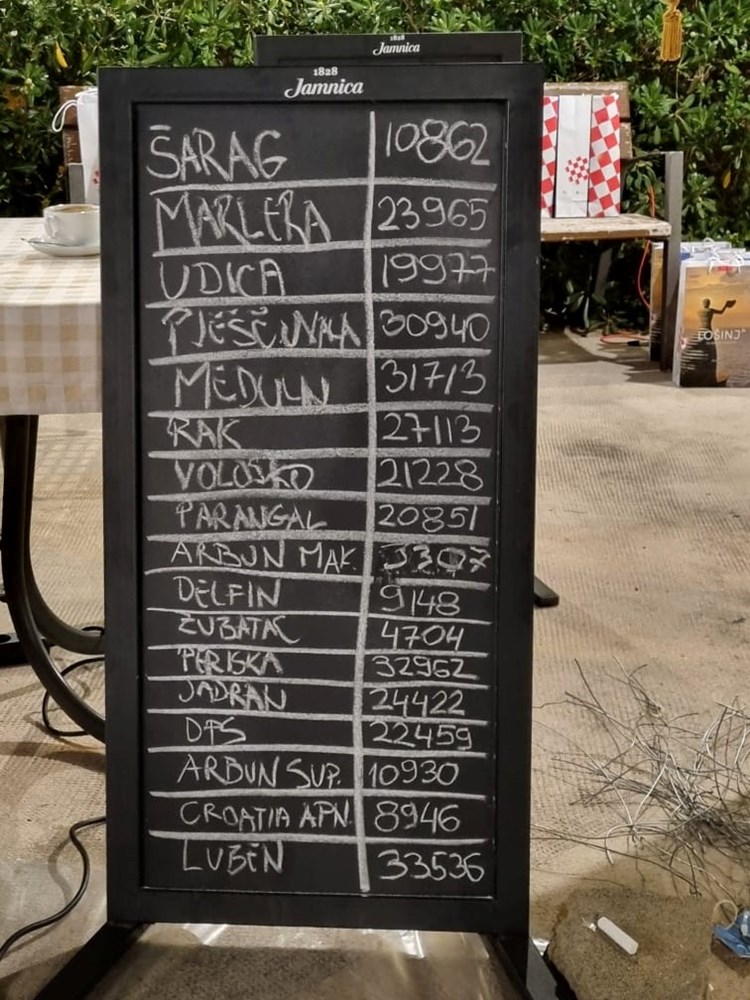 1828
Jamnica
1828
Jamnica
ŠARAG 10862
MARLERA 23965
UDICA 19977
PJEŠČUNKA 30940
MEDULN 31713
RAK 27113
VOLOSKO 21228
PARANGAL 20851
ARBUN MAK.
DELFIN 9148
ZUBATAC 4704
PERISKA 32962
JADRAN 24422
DPS 22459
ARBUN SUP. 10930
CROATIA APN. 8946
LUBEN 33536
LOŠINJ